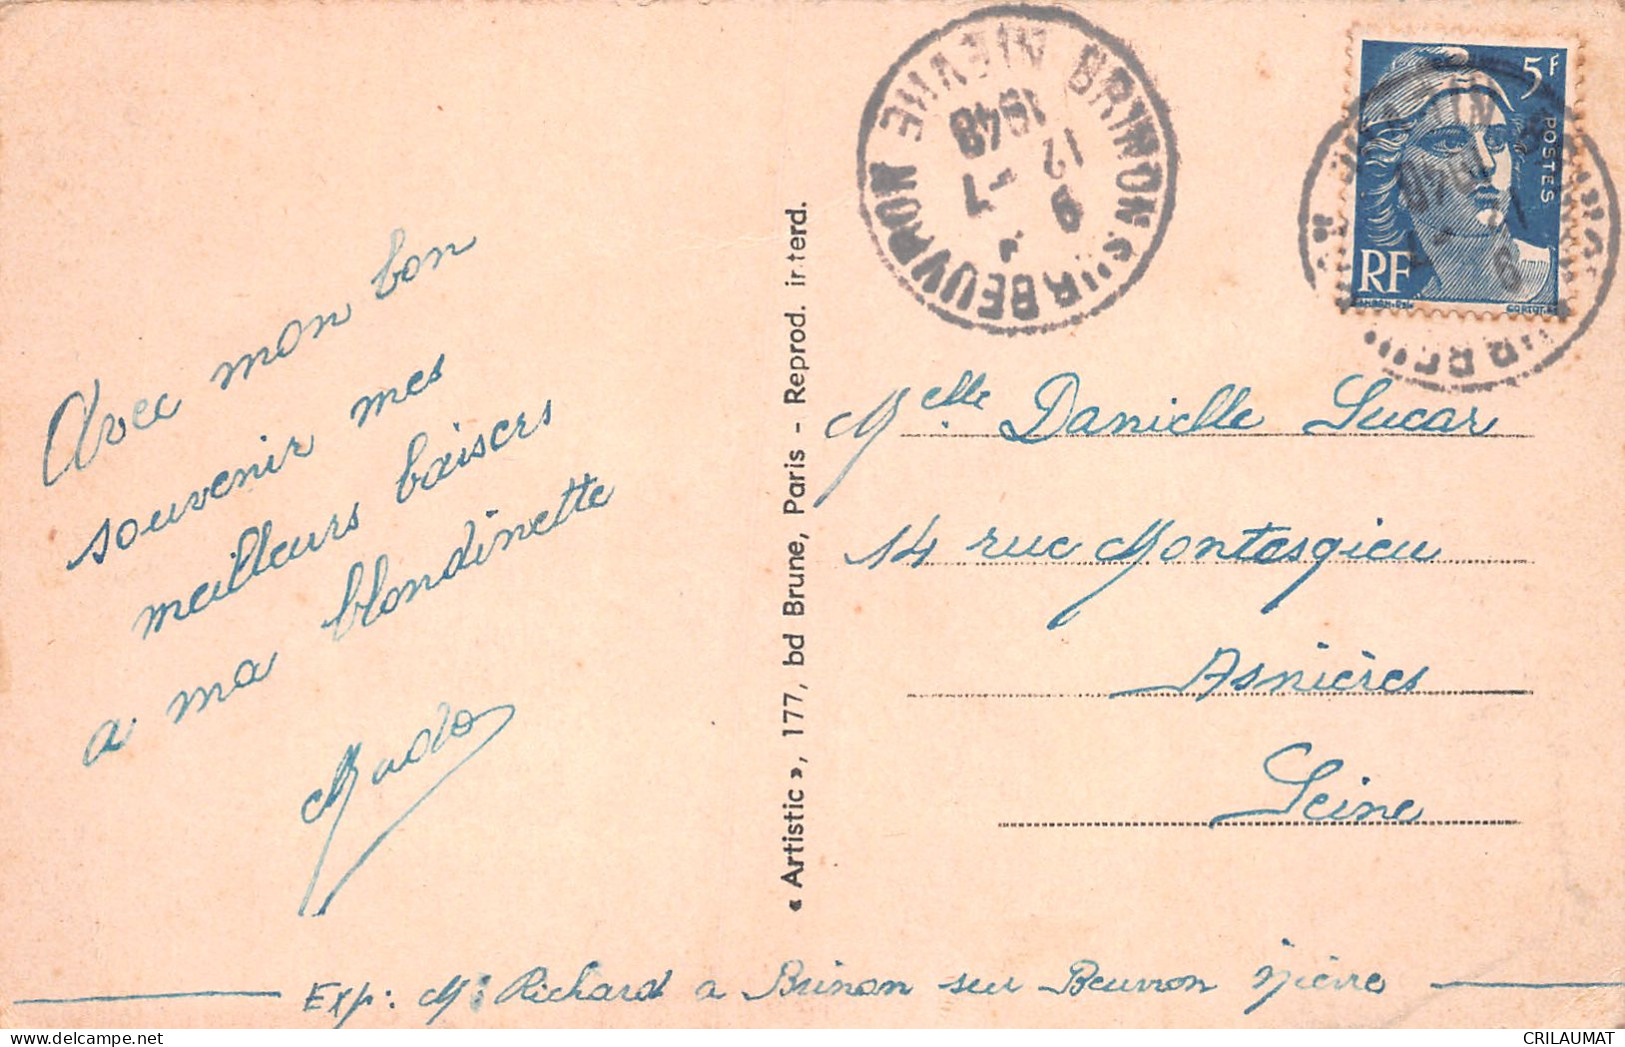 Avec mon bon
souvenir mes
meilleurs baisers
a ma blondinette
Mado
« Artistic », 177, bd Brune, Paris - Reprod. interd.
BRINON SUR BEUVRON NIEVRE
9 12
-7
1948
5F
POSTES
RF
Melle Danielle Lucar
14 rue Montesqieu
Asnières
Seine
Exp: M. Richard a Brinon sur Beuvron Nièvre
CRILAUMAT